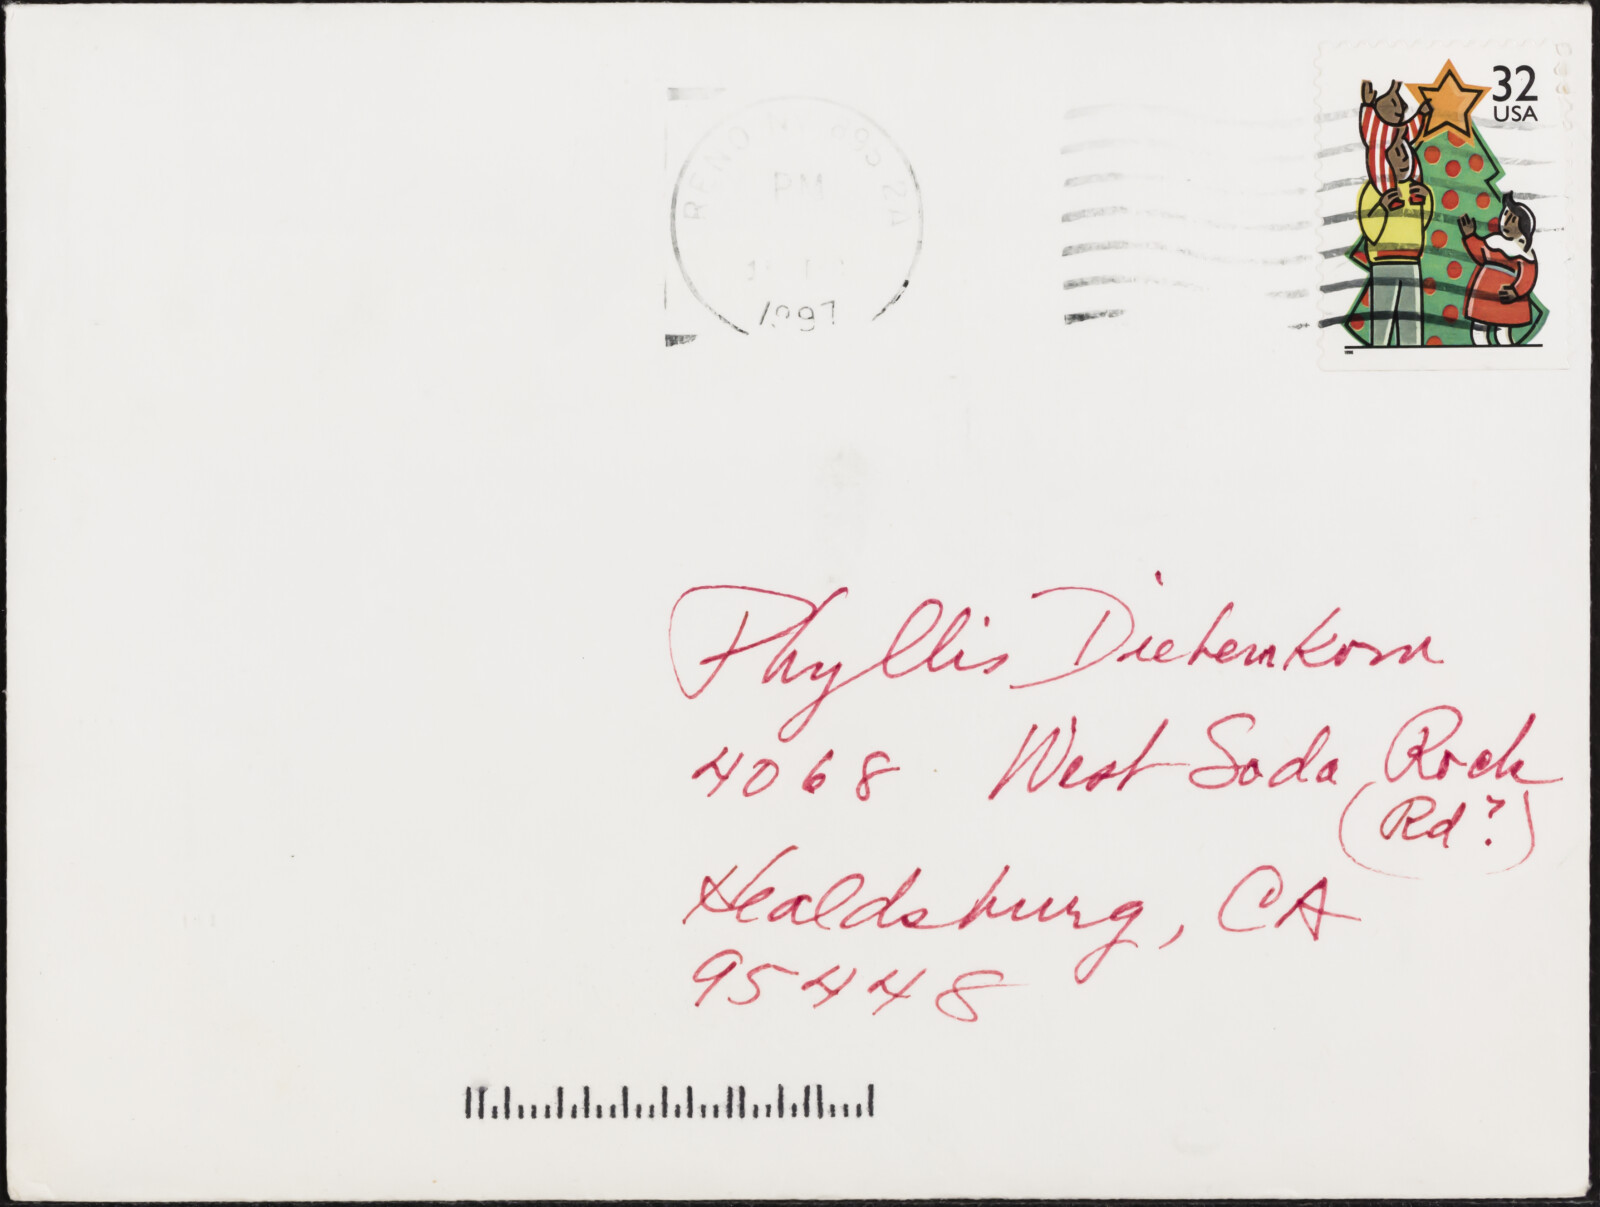 32
USA
RENO N 895 2A
PM
1997
Phyllis Diebenkorn
4068 West Soda Rock
(Rd?)
Healdsburg, CA
95448